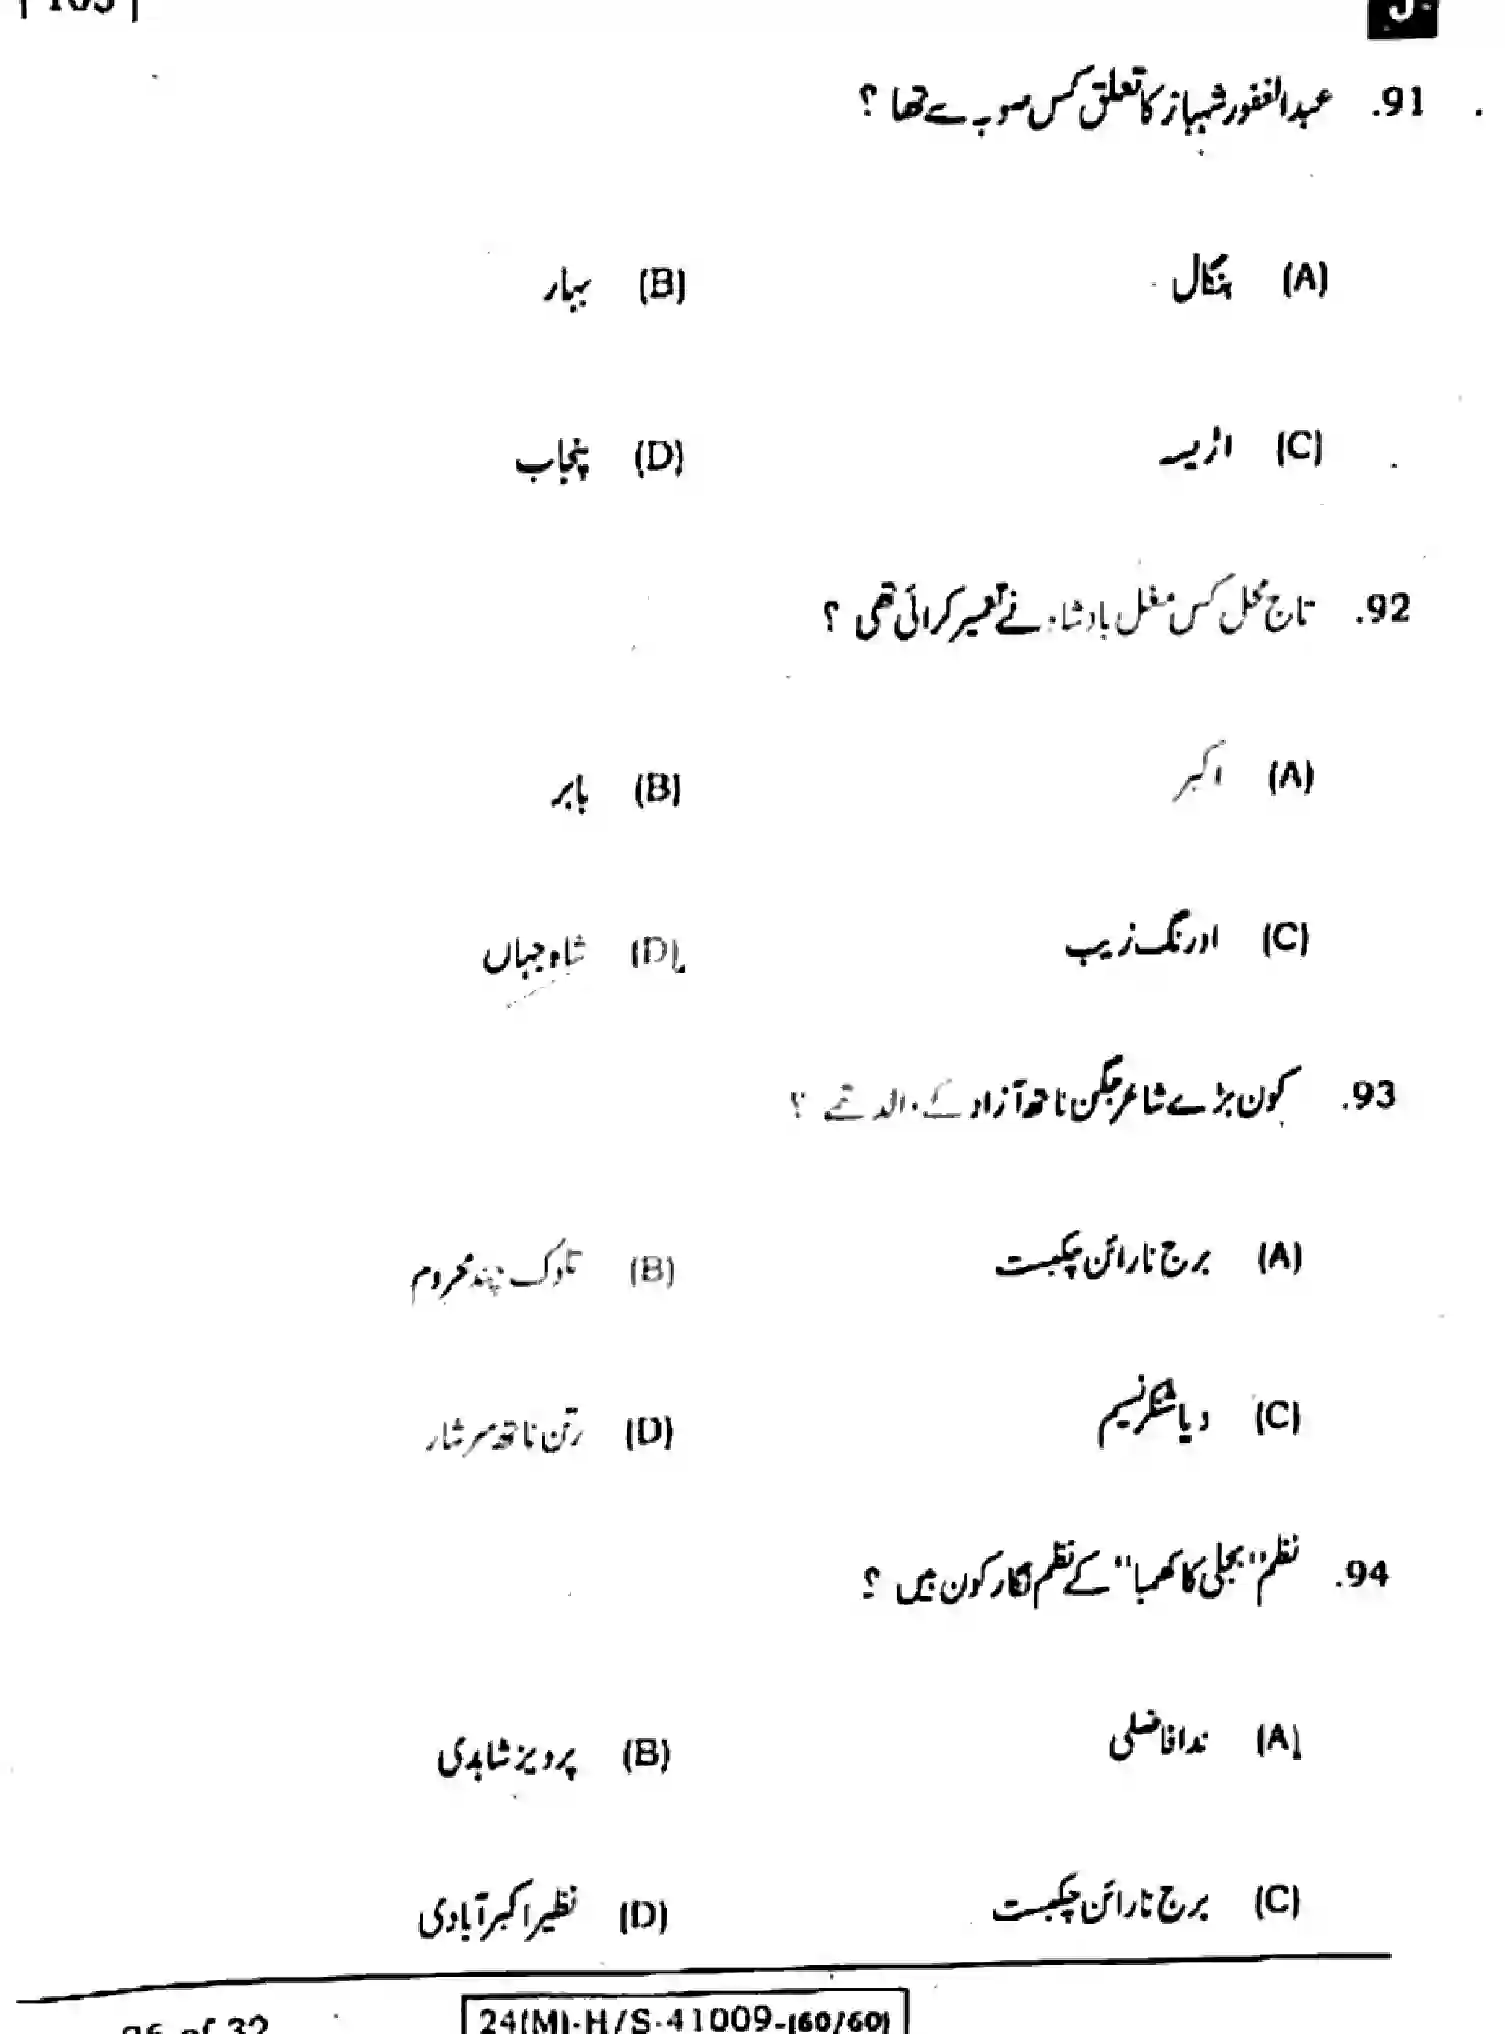 91. عبدالغفور شہباز کا تعلق کس صوبہ سے تھا ؟
(A) بنگال (B) بہار
(C) اڑیسہ (D) پنجاب
92. تاج محل کس مغل بادشاہ نے تعمیر کرائی تھی ؟
(A) اکبر (B) بابر
(C) اورنگ زیب (D) شاہ جہاں
93. کون بڑے شاعر جگن ناتھ آزاد کے والد تھے ؟
(A) برج نارائن چکبست (B) تلوک چند محروم
(C) دیا شنکر نسیم (D) رتن ناتھ سرشار
94. نظم "بجلی کا کھمبا" کے نظم نگار کون ہیں ؟
(A) ندا فاضلی (B) پرویز شاہدی
(C) برج نارائن چکبست (D) نظیر اکبر آبادی
26 of 32 24(M)-H/S-41009-(60/60)